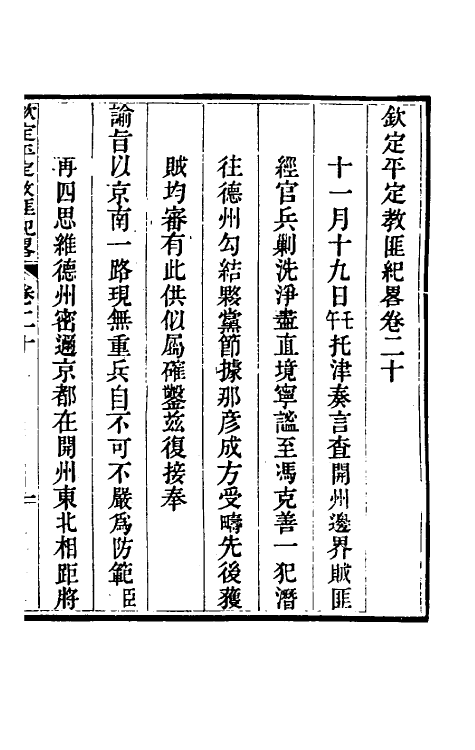 欽定平定教匪紀畧卷二十
十一月十九日壬午托津奏言查開州邊界賊匪
經官兵剿洗淨盡直境寧謐至馮克善一犯潛
往德州勾結夥黨節據那彥成方受疇先後獲
賊均審有此供似屬確鑿茲復接奉
諭旨以京南一路現無重兵自不可不嚴為防範臣
再四思維德州密邇京都在開州東北相距將
欽定平定教匪紀畧 卷二十 一